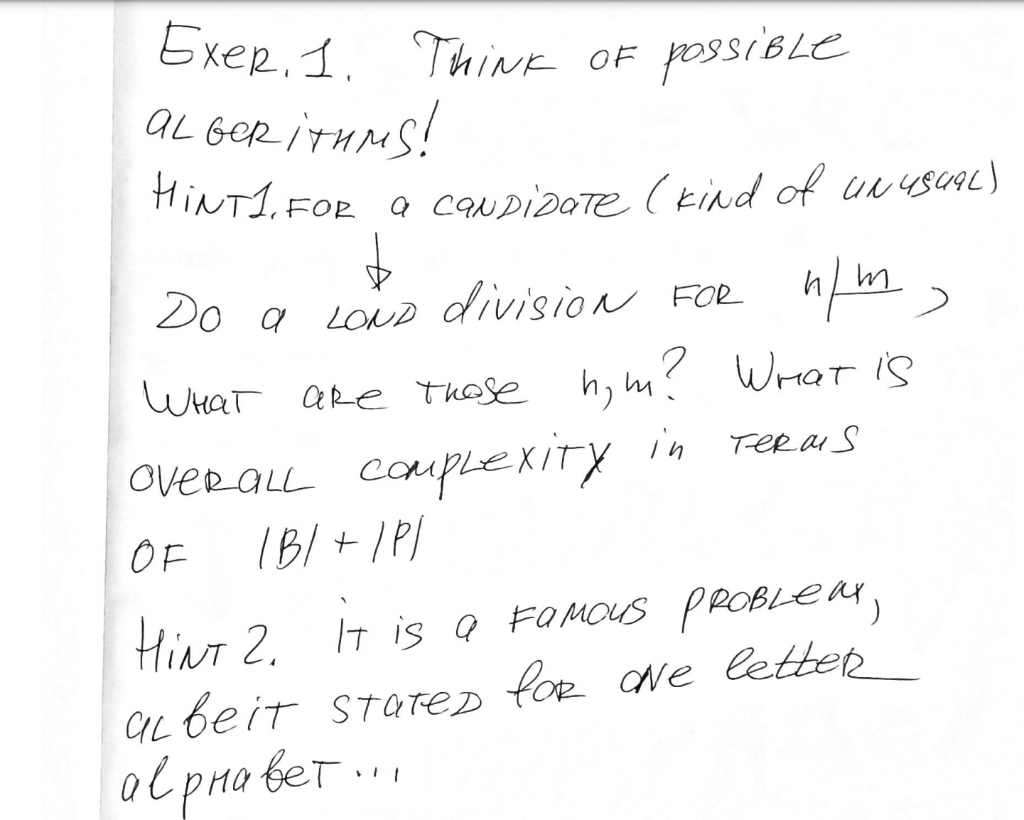 Exer. 1. Think of possible
algorithms!
Hint 1. For a candidate (kind of unusual)
↓
Do a LOND division for n/m,
What are those n, m? What is
overall complexity in terms
of |B| + |P|
Hint 2. It is a famous problem,
albeit stated for one letter
alphabet...